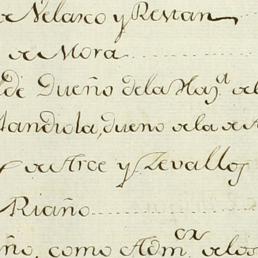 de Velasco y Restan
de Mora
de Dueño de la Haz.ª de
Landiola, dueno de la de
de Arce y Zevallos
Riaño
ño, como Adm.ᵒʳ de los